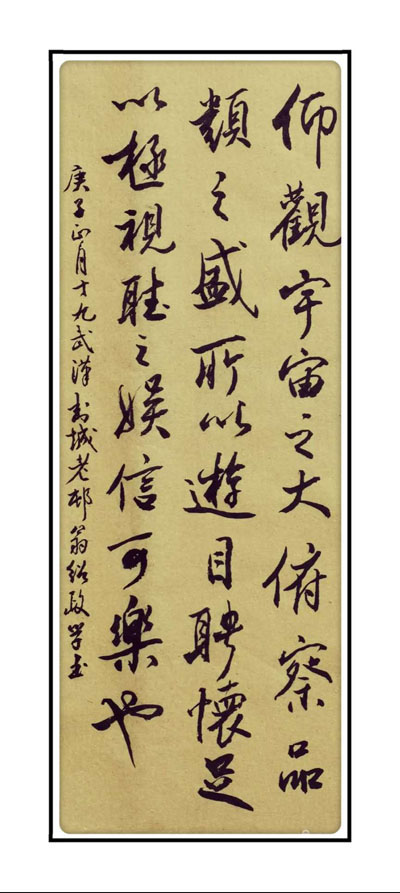 仰觀宇宙之大俯察品
類之盛所以遊目聘懷足
以極視聴之娱信可樂也
庚子正月十九武漢書城老邨翁紹政學書